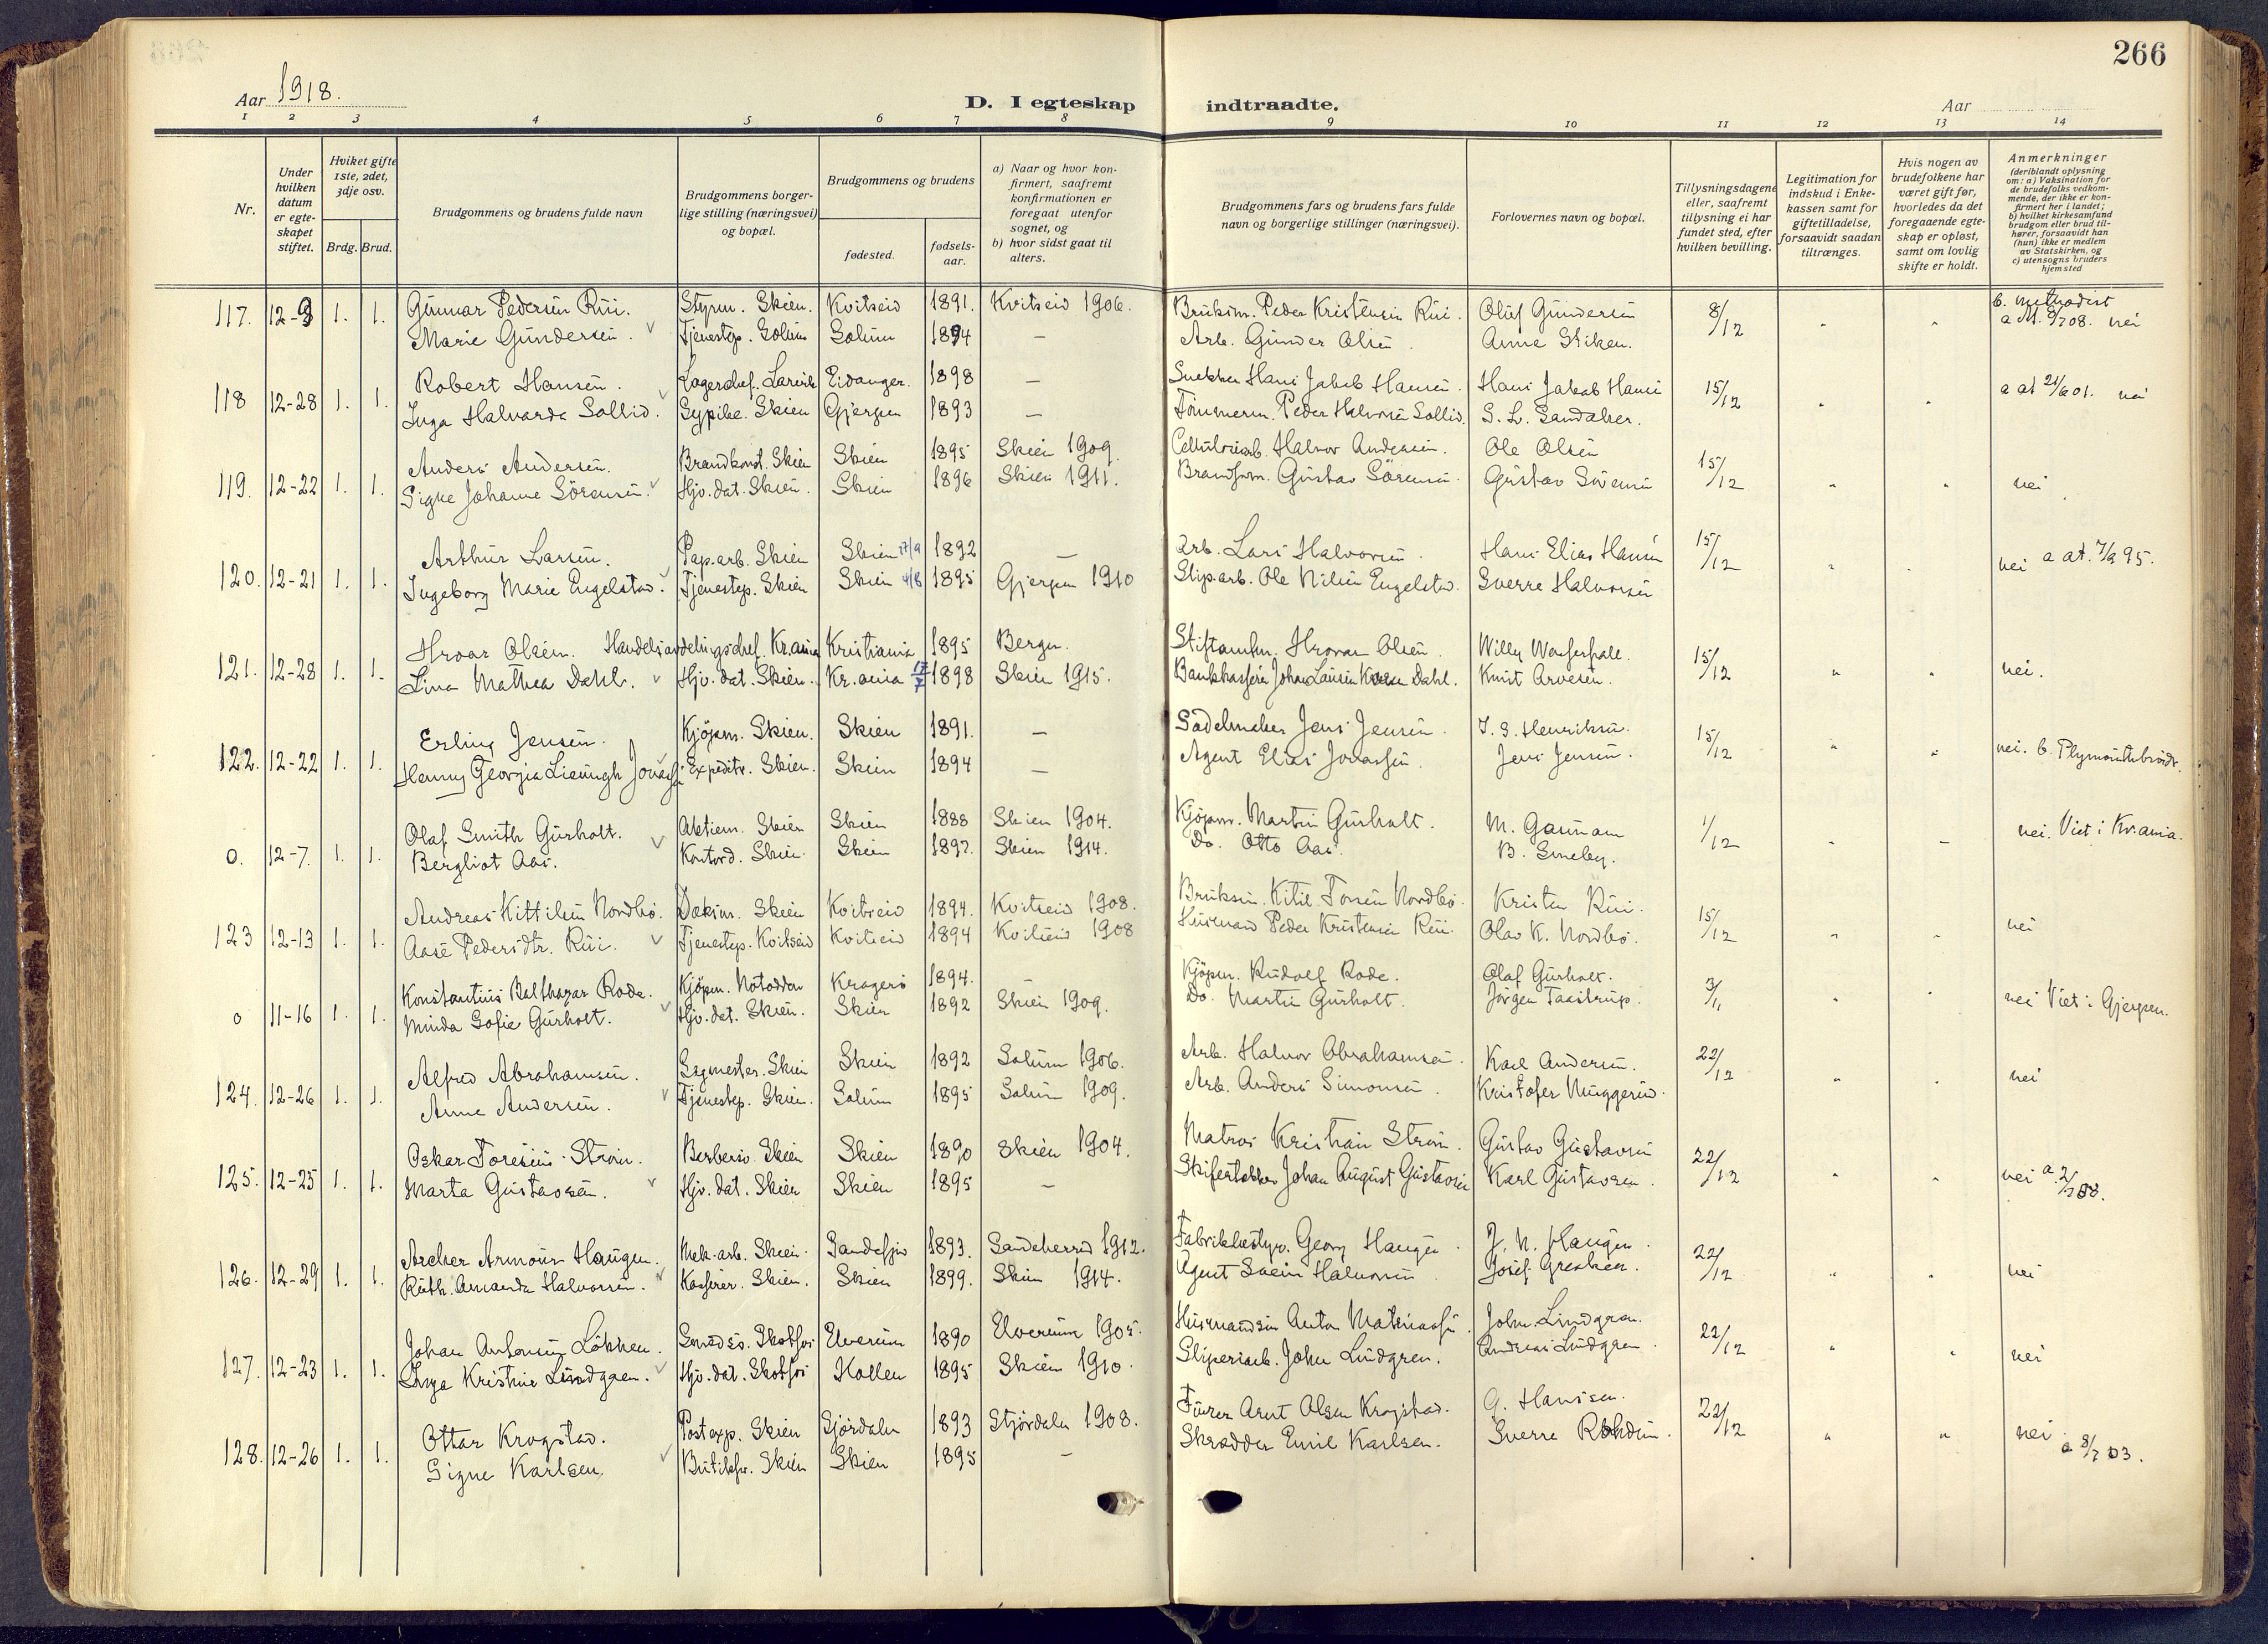 266
Aar 1918.
D. I egteskap indtraadte.
Aar
1 2 3 4 5 6 7 8 9 10 11 12 13 14
Nr.
Under hvilken datum er egte-skapet stiftet.
Hviket gifte 1ste, 2det, 3dje osv.
Brdg. Brud.
Brudgommens og brudens fulde navn
Brudgommens borger-lige stilling (næringsvei) og bopæl.
Brudgommens og brudens
fødested. fødsels-aar.
a) Naar og hvor kon-firmert, saafremt konfirmationen er foregaat utenfor sognet, og
b) hvor sidst gaat til alters.
Brudgommens fars og brudens fars fulde navn og borgerlige stillinger (næringsvei).
Forlovernes navn og bopæl.
Tillysningsdagene eller, saafremt tillysning ei har fundet sted, efter hvilken bevilling.
Legitimation for indskud i Enke-kassen samt for giftetilladelse, forsaavidt saadan tiltrænges.
Hvis nogen av brudefolkene har været gift før, hvorledes da det foregaaende egte-skap er opløst, samt om lovlig skifte er holdt.
Anmerkninger (deriblandt oplysning om: a) Vaksination for de brudefolks vedkom-mende, der ikke er kon-firmert her i landet; b) hvilket kirkesamfund brudgom eller brud til-hører, forsaavidt han (hun) ikke er medlem av Statskirken, og c) utensogns bruders hjemsted
117. 12-9 1. 1. Gunnar Pedersen Rui. Styrm. Skien. Kvitseid 1891. Kvitseid 1906. Bruksm. Peder Kristensen Rui. Oluf Gundersen 8/12 b. methodist
Marie Gundersen. Tjenestep. Solum Solum 1894 — Arb. Gunder Olsen. Anne Stiken. nei
118 12-28 1. 1. Robert Hansen. Lagerchef. Larvik Eidanger. 1898 — Snekker Hans Jakob Hansen. Hans Jakob Hansen 15/12 nei
Inga Halvarda Sollid. Sypike. Skien Gjerpen 1893 — Tømmerm. Peder Halvorsen Sollid. S. L. Sandaker.
119. 12-22 1. 1. Anders Andersen. Brandkonst. Skien Skien 1895 Skien 1909. Cellulosearb. Halvor Andersen. Ole Olsen 15/12 nei
Signe Johanne Sörensen. Hjv. dat. Skien. Skien 1896 Skien 1911. Brandform. Gustav Sörensen. Gustav Sörensen
120. 12-21 1. 1. Arthur Larsen. Pap.arb. Skien Skien 17/9 1892 — Arb. Lars Halvorsen. Hans Elias Hansen 15/12 nei a at. 7/9 95.
Ingeborg Marie Engelstad. Tjenestep. Skien Skien 4/8 1895 Gjerpen 1910 Slip.arb. Ole Nilsen Engelstad. Sverre Halvorsen
121. 12-28 1. 1. Hroar Olsen. Handelsavdelingschef. Kr.ania Kristiania 1895 Bergen. Stiftamtm. Hroar Olsen. Willy 15/12 nei.
Lina Mathea Dahl. Hjv. dat. Skien. Kr.ania 17/7 1898 Skien 1915. Bankkasserer Johan Dahl. Knut Arvesen.
122. 12-22 1. 1. Erling Jensen. Kjöpm. Skien. Skien 1891. — Sadelmaker Jens Jensen. J. S. Henriksen. 15/12 nei. b. Plymouthbrödr.
Henny Georgia Lieungh Jonassen Expeditr. Skien. Skien 1894 — Agent Elias Jonassen. Jens Jensen.
0. 12-7. 1. 1. Olaf Smith Gurholt. Aktiem. Skien Skien 1888 Skien 1904. Kjöpm. Martin Gurholt. M. 1/12 nei. Viet i Kr.ania.
Bergliot Aas. Kontord. Skien. Skien 1897. Skien 1914. Do. Otto Aas. B. Smeby.
123 12-13 1. 1. Andreas Kittilsen Nordbö. Dæksm. Skien Kvitseid 1894. Kvitseid 1908. Bruksm. Kitil Torsen Nordbö. Kristen Rui. 15/12 nei
Aase Pedersdtr. Rui. Tjenestep. Kvitseid Kvitseid 1894 Kvitseid 1908 Husmand Peder Kristensen Rui. Olav K. Nordbö.
0 11-16 1. 1. Konstantius Balthazar Rode. Kjöpm. Notodden Kragerö 1894. — Kjöpm. Rudolf Rode. Olaf Gurholt. 3/11 nei Viet i Gjerpen.
Minda Sofie Gurholt. Hjv. dat. Skien. Skien 1892 Skien 1909. Do. Martin Gurholt. Jörgen Taastrup.
124. 12-26 1. 1. Alfred Abrahamsen. Sagmester. Skien Skien 1892 Solum 1906. Arb. Halvor Abrahamsen. Karl Andersen. 22/12 nei
Anne Andersen. Tjenestep. Skien. Solum 1895 Solum 1909. Arb. Anders Simonsen. Kristofer Muggerud.
125. 12-25 1. 1. Oskar Toresius Ström. Berbersv. Skien Skien 1890 Skien 1904. Matros Kristian Ström. Gustav Gustavsen 22/12 nei
Marta Gustavsen. Hjv. dat. Skien Skien 1895 — Skifertækker Johan August Gustavsen Karl Gustavsen.
126. 12-29 1. 1. Archer Armour Haugen. Mek.arb. Skien. Sandefjord 1893. Sandeherred 1912. Fabrikbestyr. Georg Haugen. J. N. Haugen. 22/12 nei
Ruth Amanda Halvorsen. Kasserer. Skien. Skien 1899. Skien 1914. Agent Svein Halvorsen Josef
127. 12-23 1. 1. Johan Antonius Lökken. Skotfos Elverum 1890 Elverum 1905. Husmandsm. Anton Mathiassen. John Lindgren. 22/12 nei
Inga Kristine Lindgren. Hjv. dat. Skotfos Hollen 1895 Skien 1910. Sliperiarb. John Lindgren. Andreas Lindgren.
128. 12-26 1. 1. Ottar Krogstad. Postexp. Skien Stjördalen 1893 Stjördalen 1908. Furer Arnt Olsen Krogstad. G. Hansen. 22/12 nei
Signe Karlsen. Butikfr. Skien Skien 1895 — Skrædder Emil Karlsen. Sverre a 8/7 03.